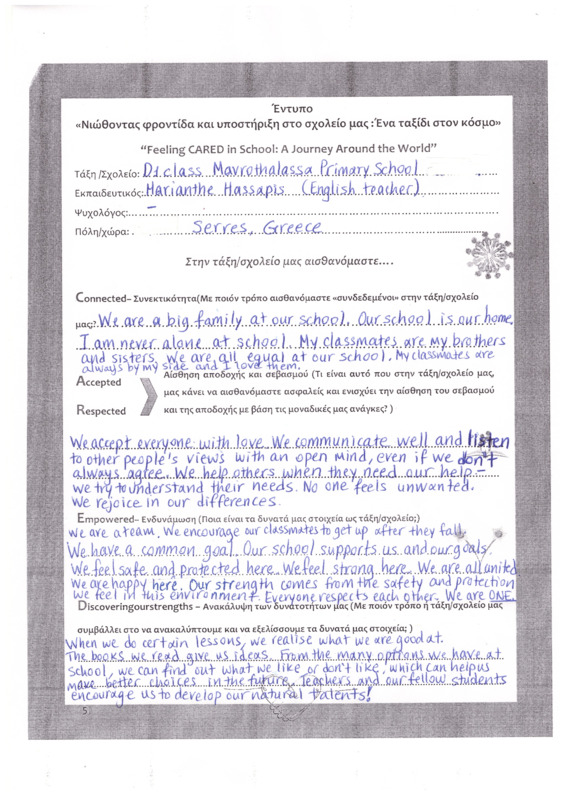 Έντυπο
«Νιώθοντας φροντίδα και υποστήριξη στο σχολείο μας :Ένα ταξίδι στον κόσμο»
“Feeling CARED in School: A Journey Around the World”
Τάξη /Σχολείο: D1 class Mavrothalassa Primary School
Εκπαιδευτικός: Marianthe Hassapis (English teacher)
Ψυχολόγος: –
Πόλη/χώρα: . Serres, Greece
Στην τάξη/σχολείο μας αισθανόμαστε….
Connected– Συνεκτικότητα(Με ποιόν τρόπο αισθανόμαστε «συνδεδεμένοι» στην τάξη/σχολείο
μας;? We are a big family at our school. Our school is our home.
I am never alone at school. My classmates are my brothers
and sisters. We are all equal at our school. My classmates are
always by my side and I love them.
Accepted
Respected
Αίσθηση αποδοχής και σεβασμού (Τι είναι αυτό που στην τάξη/σχολείο μας,
μας κάνει να αισθανόμαστε ασφαλείς και ενισχύει την αίσθηση του σεβασμού
και της αποδοχής με βάση τις μοναδικές μας ανάγκες? )
We accept everyone with love. We communicate well and listen
to other people's views with an open mind, even if we don't
always agree. We help others when they need our help –
we try to understand their needs. No one feels unwanted.
We rejoice in our differences.
Empowered– Ενδυνάμωση (Ποια είναι τα δυνατά μας στοιχεία ως τάξη/σχολείο;)
We are a team. We encourage our classmates to get up after they fall.
We have a common goal. Our school supports us and our goals.
We feel safe and protected here. We feel strong here. We are all united.
We are happy here. Our strength comes from the safety and protection
we feel in this environment. Everyone respects each other. We are ONE.
Discoveringourstrengths – Ανακάλυψη των δυνατοτήτων μας (Με ποιόν τρόπο η τάξη/σχολείο μας
συμβάλλει στο να ανακαλύπτουμε και να εξελίσσουμε τα δυνατά μας στοιχεία; )
When we do certain lessons, we realise what we are good at.
The books we read give us ideas. From the many options we have at
school, we can find out what we like or don't like, which can help us
make better choices in the future. Teachers and our fellow students
encourage us to develop our natural talents!
5